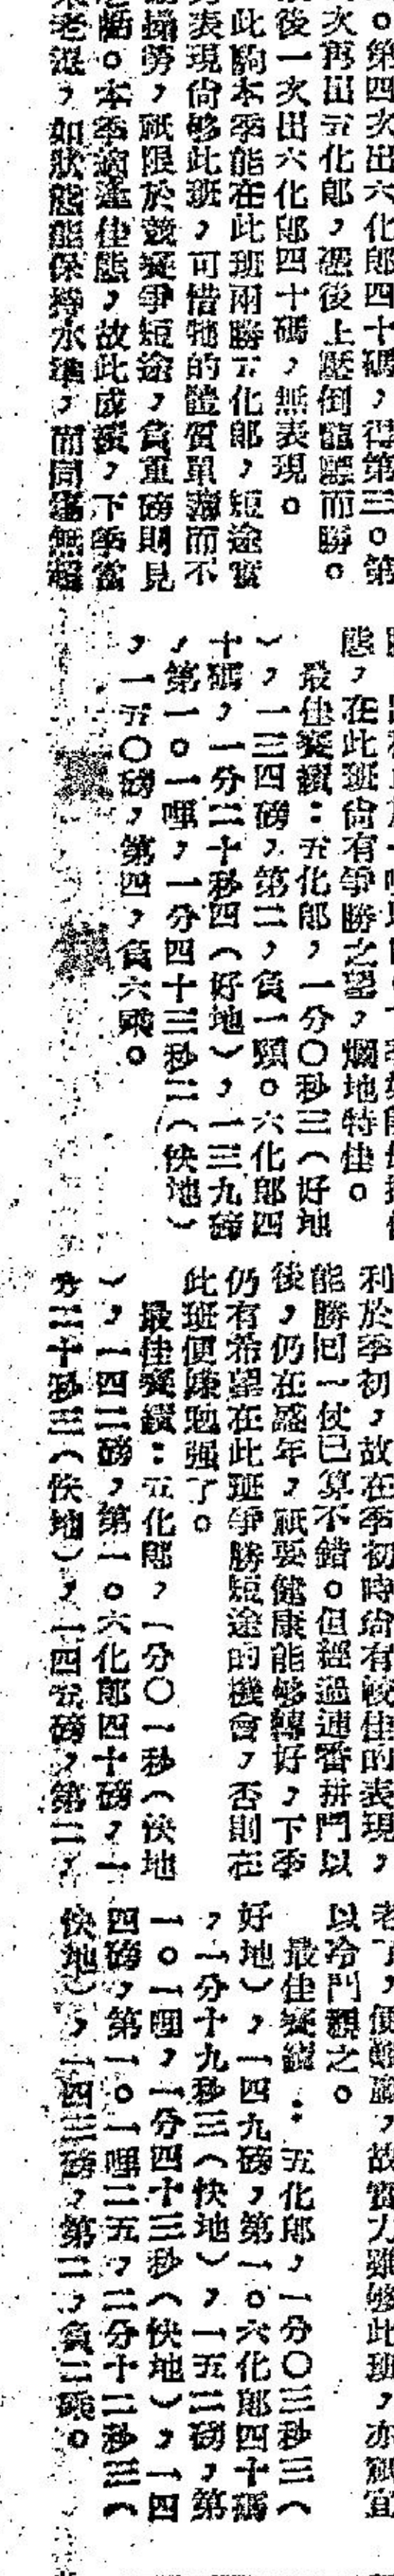 。第四次出六化郎四十碼，得第三。第
次再出五化郎，憑後上壓倒龍驤而勝。
後一次出六化郎四十碼，無表現。
此駒本季能在此班兩勝五化郎，短途實
表現尚够此班，可惜牠的體質單薄而不
操勞，祇限於競逐爭短途，負重磅則見
。本季適逢佳態，故此成績，下季當
老混，如狀態能保持水準，而同場無超
態，在此班尚有爭勝之望，爛地特佳。
最佳賽績：五化郎，一分〇秒三（好地
），一三四磅，第二，負一頸。六化郎四
十碼，一分二十秒四（好地），一三九磅
，第一。一哩，一分四十三秒二（快地）
，一五〇磅，第四，負六乘。
利於季初，故在季初時尚有較佳的表現，
能勝回一仗已算不錯。但經過連番拼鬥以
後，仍在盛年，祇要健康能够轉好，下季
仍有希望在此班爭勝短途的機會，否則在
此班便嫌勉强了。
最佳賽績：五化郎，一分〇一秒（快地
），一四二磅，第一。六化郎四十磅，一
分二十秒三（快地），一四五磅，第二，
老了，便難贏，故實力雖够此班，亦祇宜
以冷門視之。
最佳賽績：五化郎，一分〇三秒三（
好地），一四九磅，第一。六化郎四十碼
，一分十九秒三（快地），一五二磅，第
一。一哩，一分四十三秒（快地），一四
四磅，第一。一哩二五，二分十二秒三（
快地），一四三磅，第二，負二乘。